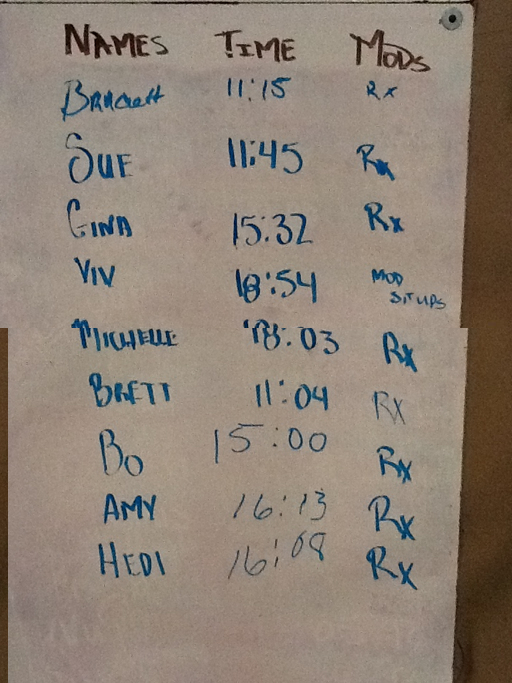 NAMES TIME MODS
11:15 Rx
SUE 11:45 Rx
GINA 15:32 Rx
VIV 18:54 MOD SITUPS
MICHELLE 18:03 Rx
BRETT 11:04 RX
BO 15:00 Rx
AMY 16:13 Rx
HEDI 16:08 Rx